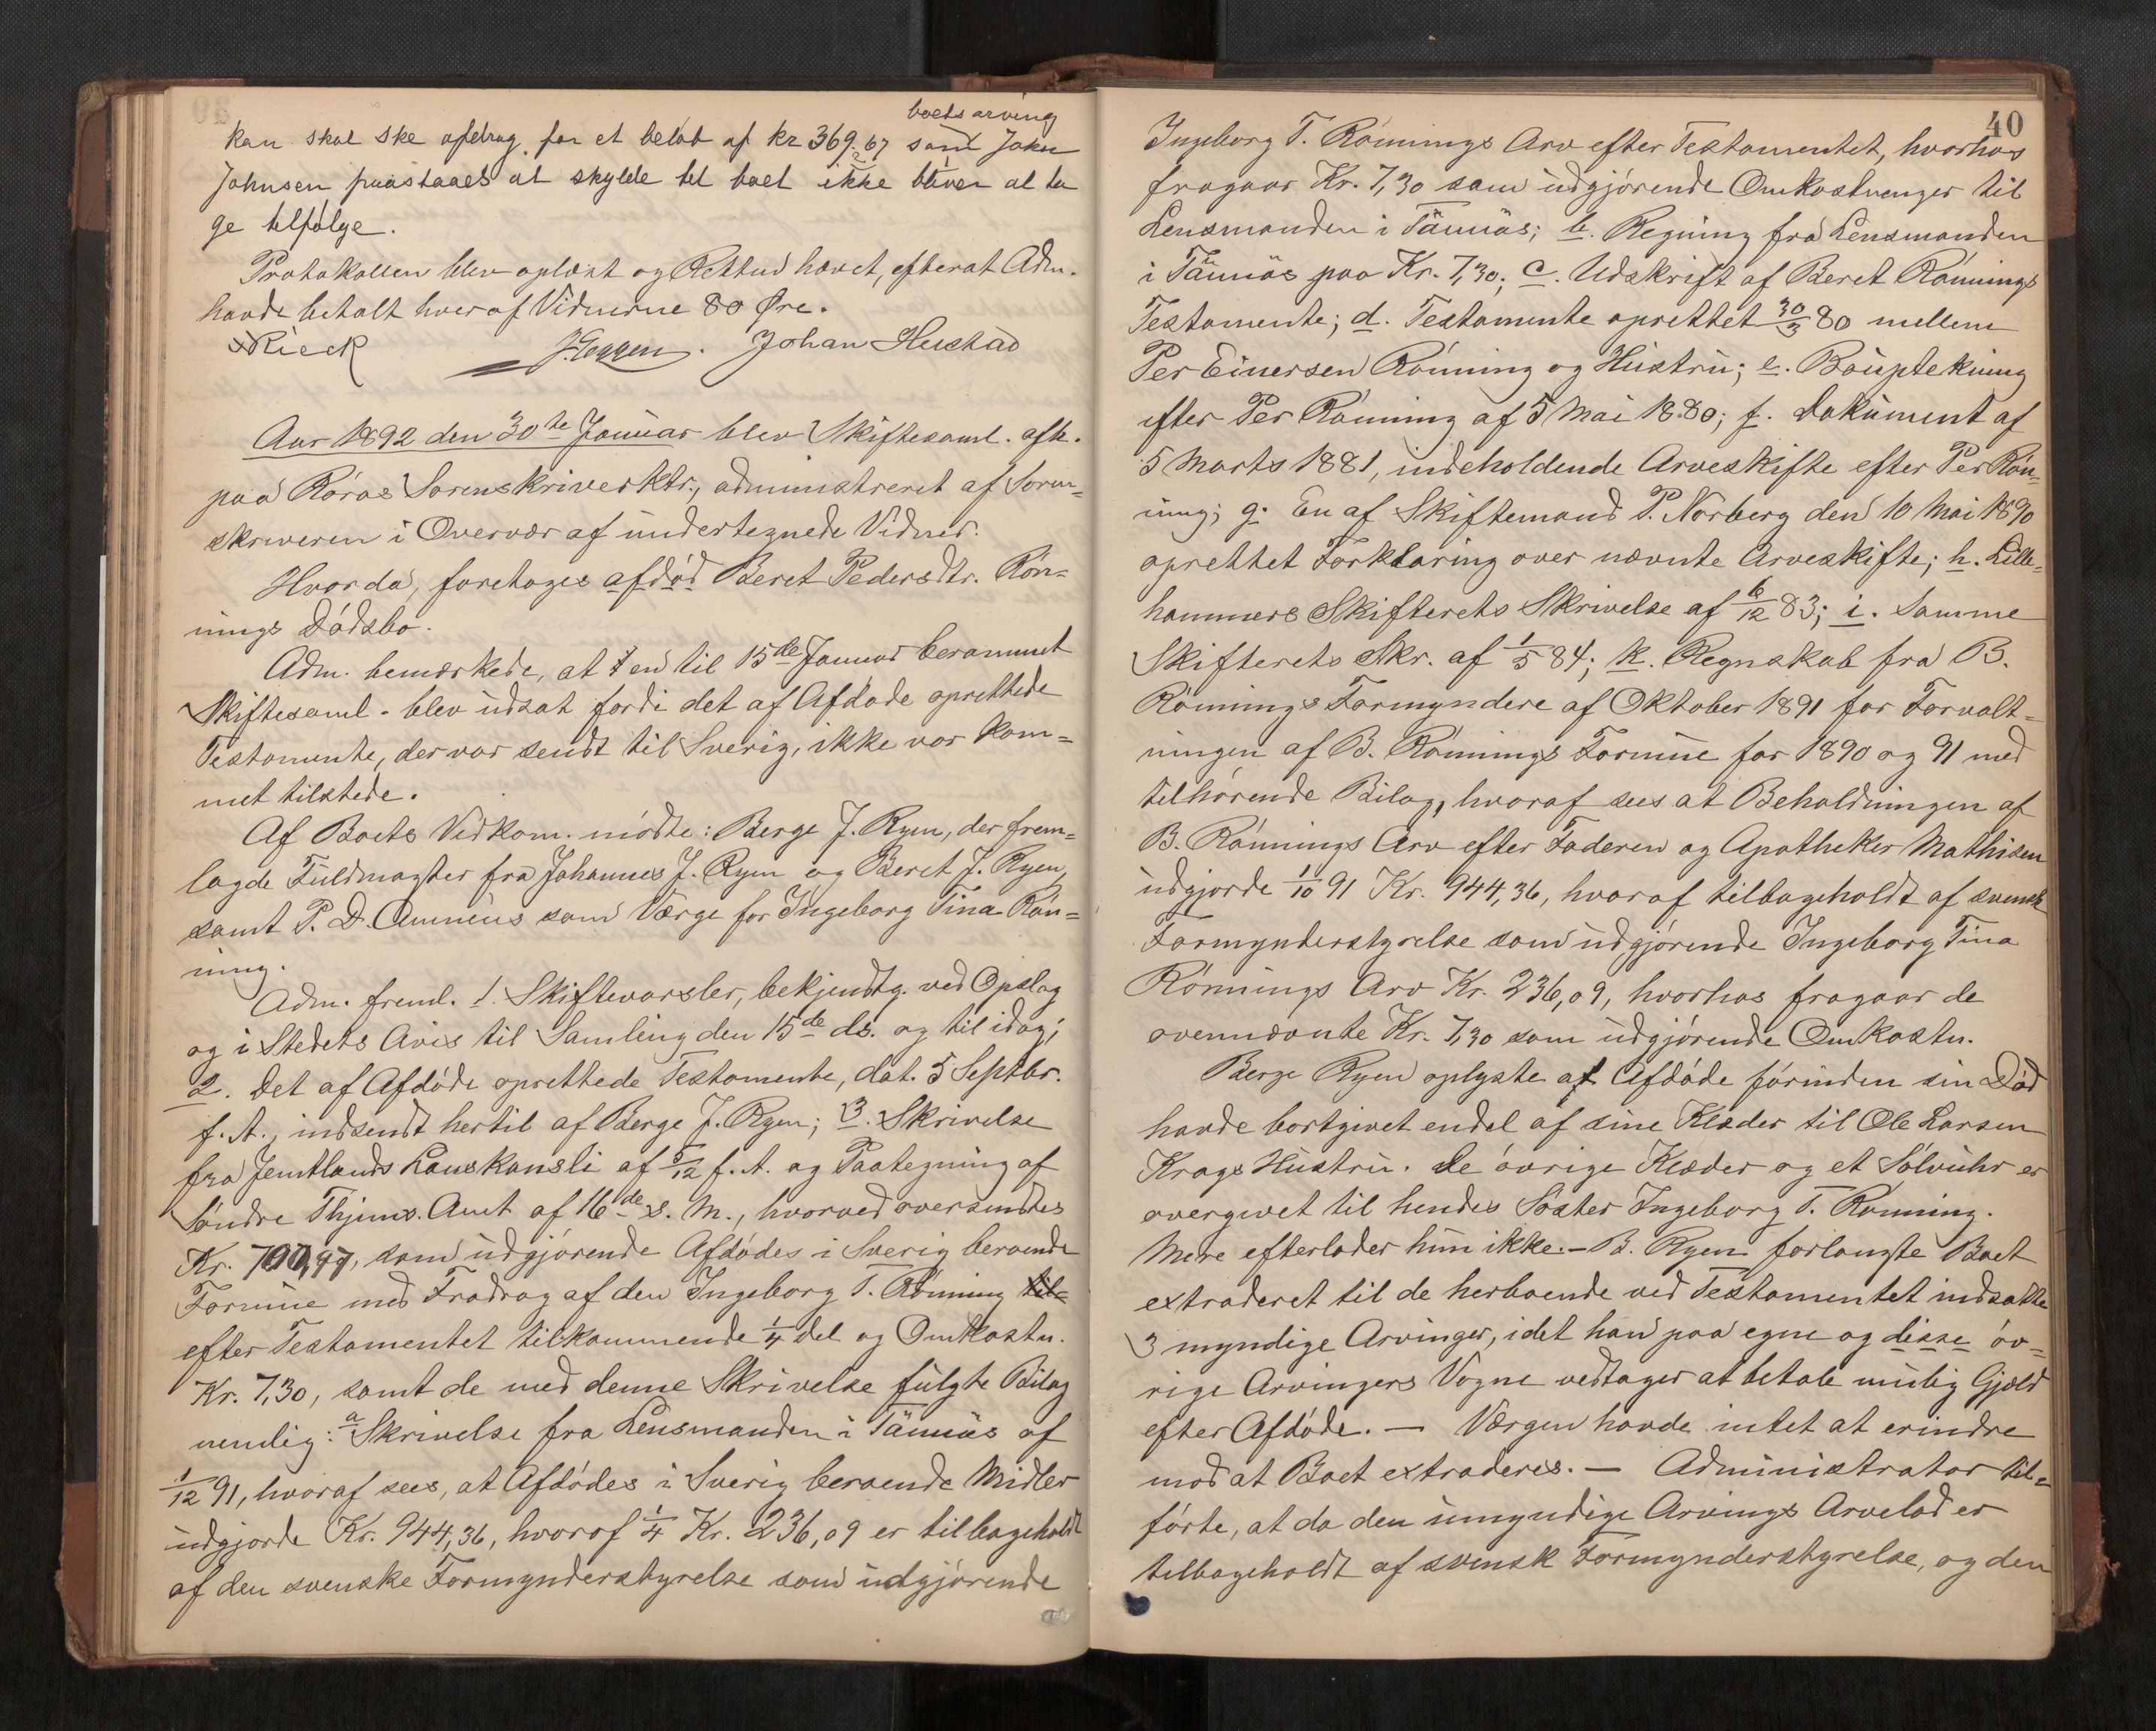 boets arving
kan skal ske afdrag for et beløb af kr 369.67 som John
Johnsen paastaaes at skylde til boet ikke bliver at ta
ge tilfølge.
Protokollen blev oplæst og Retten hævet, efterat Adm.
havde betalt hver af Vidnerne 80 Øre.
Rieck J. Eggen. Johan Hustad
Aar 1892 den 30te Januar blev Skiftesaml. afh.
paa Røros Sorenskriverktr., administreret af Soren-
skriveren i Overvær af undertegnede Vidner.
Hvorda, foretages afdød Beret Pedersdtr. Røn-
nings Dødsbo.
Adm. bemærkede, at den til 15de Januar berammet
Skiftesaml. blev udsat fordi det af Afdøde oprettede
Testamente, der var sendt til Sverig, ikke var kom-
met tilstede.
Af Boets Vedkom. mødte: Berge J. Ryen, der frem-
lagde Fuldmagter fra Johannes J. Ryen og Beret J. Ryen,
samt P. D. Amneus som Værge for Ingeborg Tina Røn-
ning.
Adm. freml. 1. Skiftevarsler, bekjendtg. ved Opslag
og i Stedets Avis til Samling den 15de ds. og til idag;
2. Det af Afdøde oprettede Testamente, dat. 5 Septbr.
f. A., indsendt hertil af Berge J. Ryen; 3. Skrivelse
fra Jemtlands Lanskansli af 5/12 f. A. og Paategning af
Søndre Thjems. Amt af 16de s. M., hvorved oversendtes
Kr. 700,97, som udgjørende Afdødes i Sverig beroende
Formue med Fradrag af den Ingeborg T. Rønning til-
efter Testamentet tilkommende 1/4 del og Omkostn.
Kr. 7,30, samt de med denne Skrivelse fulgte Bilag
nemlig: a Skrivelse fra Lensmanden i Tännäs af
1/12 91, hvoraf sees, at Afdødes i Sverig beroende Midler
udgjorde Kr. 944,36, hvoraf 1/4 Kr. 236,09 er tilbageholdt
af den svenske Formynderstyrelse som udgjørende
40
Ingeborg T. Rønnings Arv efter Testamentet, hvorhos
fragaar Kr. 7,30 som udgjørende Omkostninger til
Lensmanden i Tännäs; b. Regning fra Lensmanden
i Tännäs paa Kr. 7,30; c. Udskrift af Beret Rønnings
Testamente; d. Testamente oprettet 30/3 80 mellem
Per Einersen Rønning og Hustru; e. Bouptekning
efter Per Rønning af 5 Mai 1880; f. Dokument af
5 Marts 1881, indeholdende Arveskifte efter Per Røn-
ning; g. En af Skiftemand P. Norberg den 10 Mai 1890
oprettet Forklaring over nævnte Arveskifte; h. Lille-
hammers Skifterets Skrivelse af 6/12 83; i. Samme
Skifterets Skr. af 1/5 84; k. Regnskab fra B.
Rønnings Formyndere af Oktober 1891 for Forvalt-
ningen af B. Rønnings Formue for 1890 og 91 med
tilhørende Bilag, hvoraf sees at Beholdningen af
B. Rønnings Arv efter Faderen og Apotheker Mathisen
udgjorde 1/10 91 Kr. 944,36, hvoraf tilbageholdt af svensk
Formynderstyrelse som udgjørende Ingeborg Tina
Rønnings Arv Kr. 236,09, hvorhos fragaar de
ovennævnte Kr. 7,30 som udgjørende Omkostn.
Berge Ryen oplyste at Afdøde førinden sin Død
havde bortgivet endel af sine Klæder til Ole Larsen
Krags Hustru. De øvrige Klæder og et Sølvuhr er
overgivet til hendes Søster Ingeborg T. Rønning.
Mere efterlader hun ikke. – B. Ryen forlangte Boet
extraderet til de herboende ved Testamentet indsatte
3 myndige Arvinger, idet han paa egne og disse øv-
rige Arvingers Vegne vedtager at betale mulig Gjæld
efter Afdøde. – Værgen havde intet at erindre
mod at Boet extraderes. – Administrator til-
førte, at da den umyndige Arvings Arvelod er
tilbageholdt af svensk Formynderstyrelse, og den